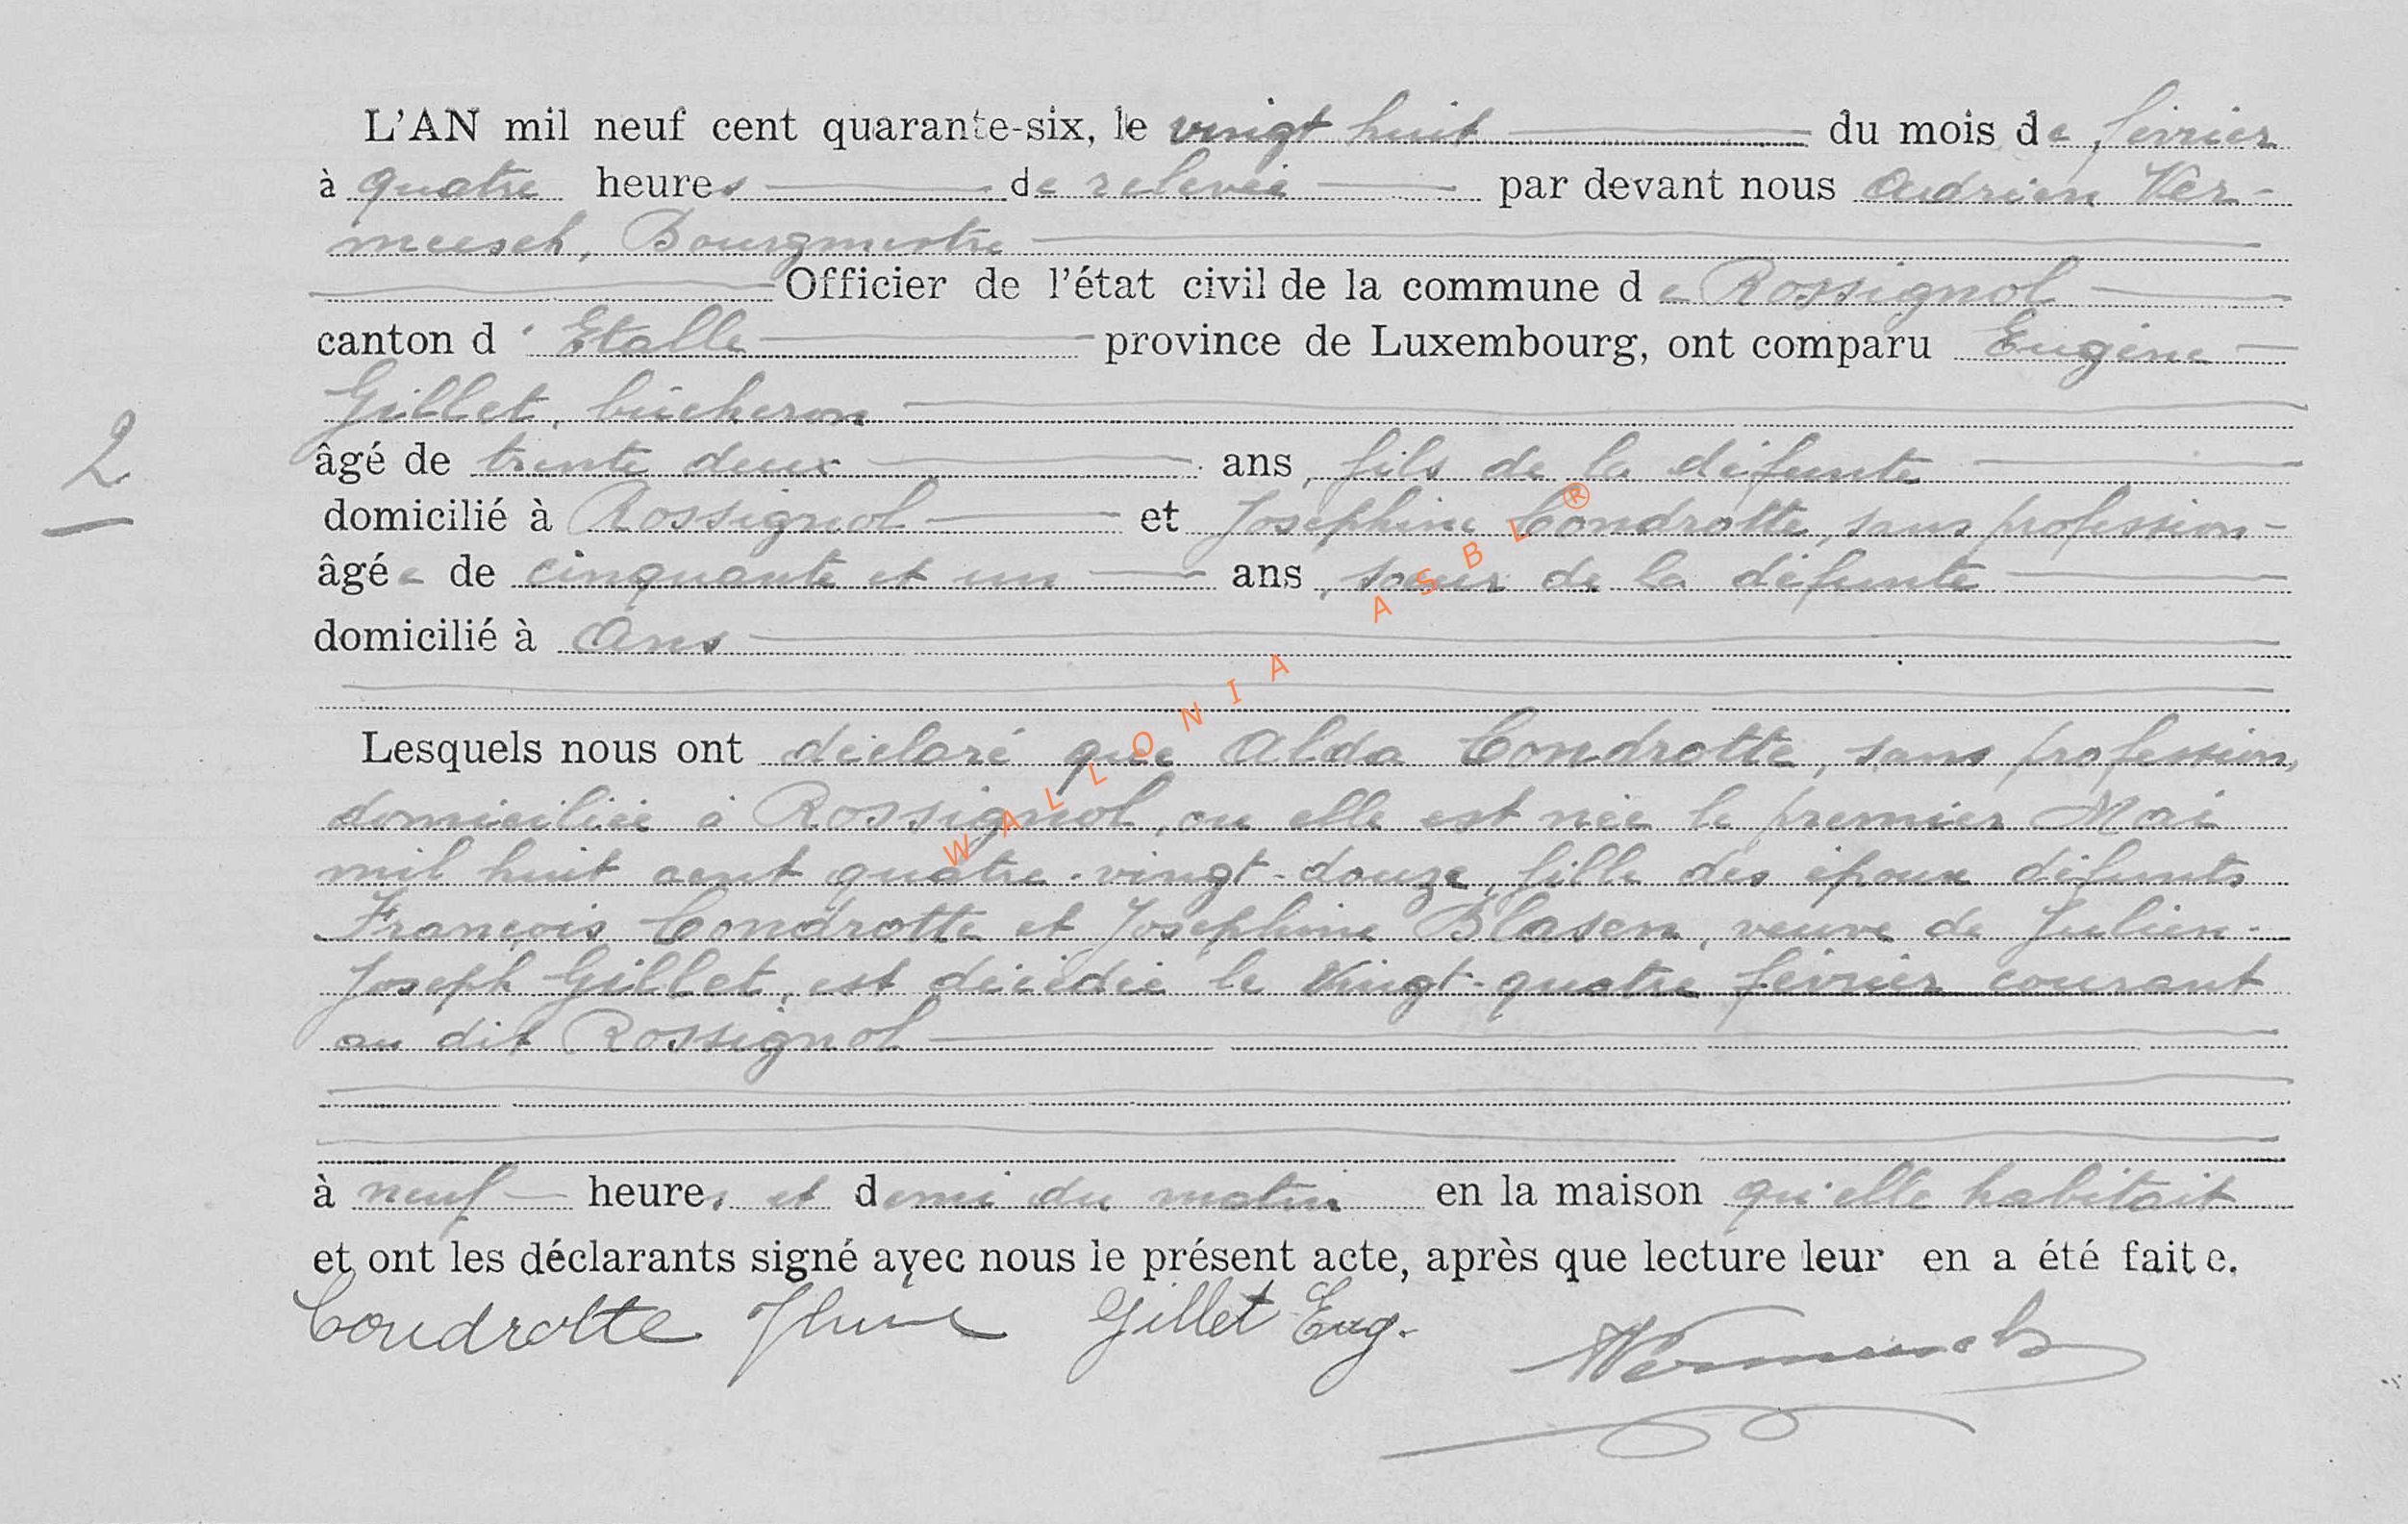 L'AN mil neuf cent quarante-six, le vingt huit du mois de février
à quatre heures de relevée par devant nous Adrien Ver-
meesch, Bourgmestre
Officier de l'état civil de la commune de Rossignol
canton d'Etalle province de Luxembourg, ont comparu Eugène
Gillet, bûcheron
âgé de trente deux ans, fils de la défunte
2
domicilié à Rossignol et Joséphine Condrotte, sans profession
âgée de cinquante et un ans, soeur de la défunte
domicilié à Ans
Lesquels nous ont déclaré que Alda Condrotte, sans profession,
domiciliée à Rossignol, ou elle est née le premier Mai
mil huit cent quatre-vingt-douze, fille des époux défunts
François Condrotte et Joséphine Blasen, veuve de Julien-
Joseph Gillet, est décédée le Vingt-quatre février courant
au dit Rossignol
à neuf heures et demi du matin en la maison qu'elle habitait
et ont les déclarants signé avec nous le présent acte, après que lecture leur en a été faite.
Condrotte Jhine Gillet Eug. AVermeesch
WALLONIA ASBL®